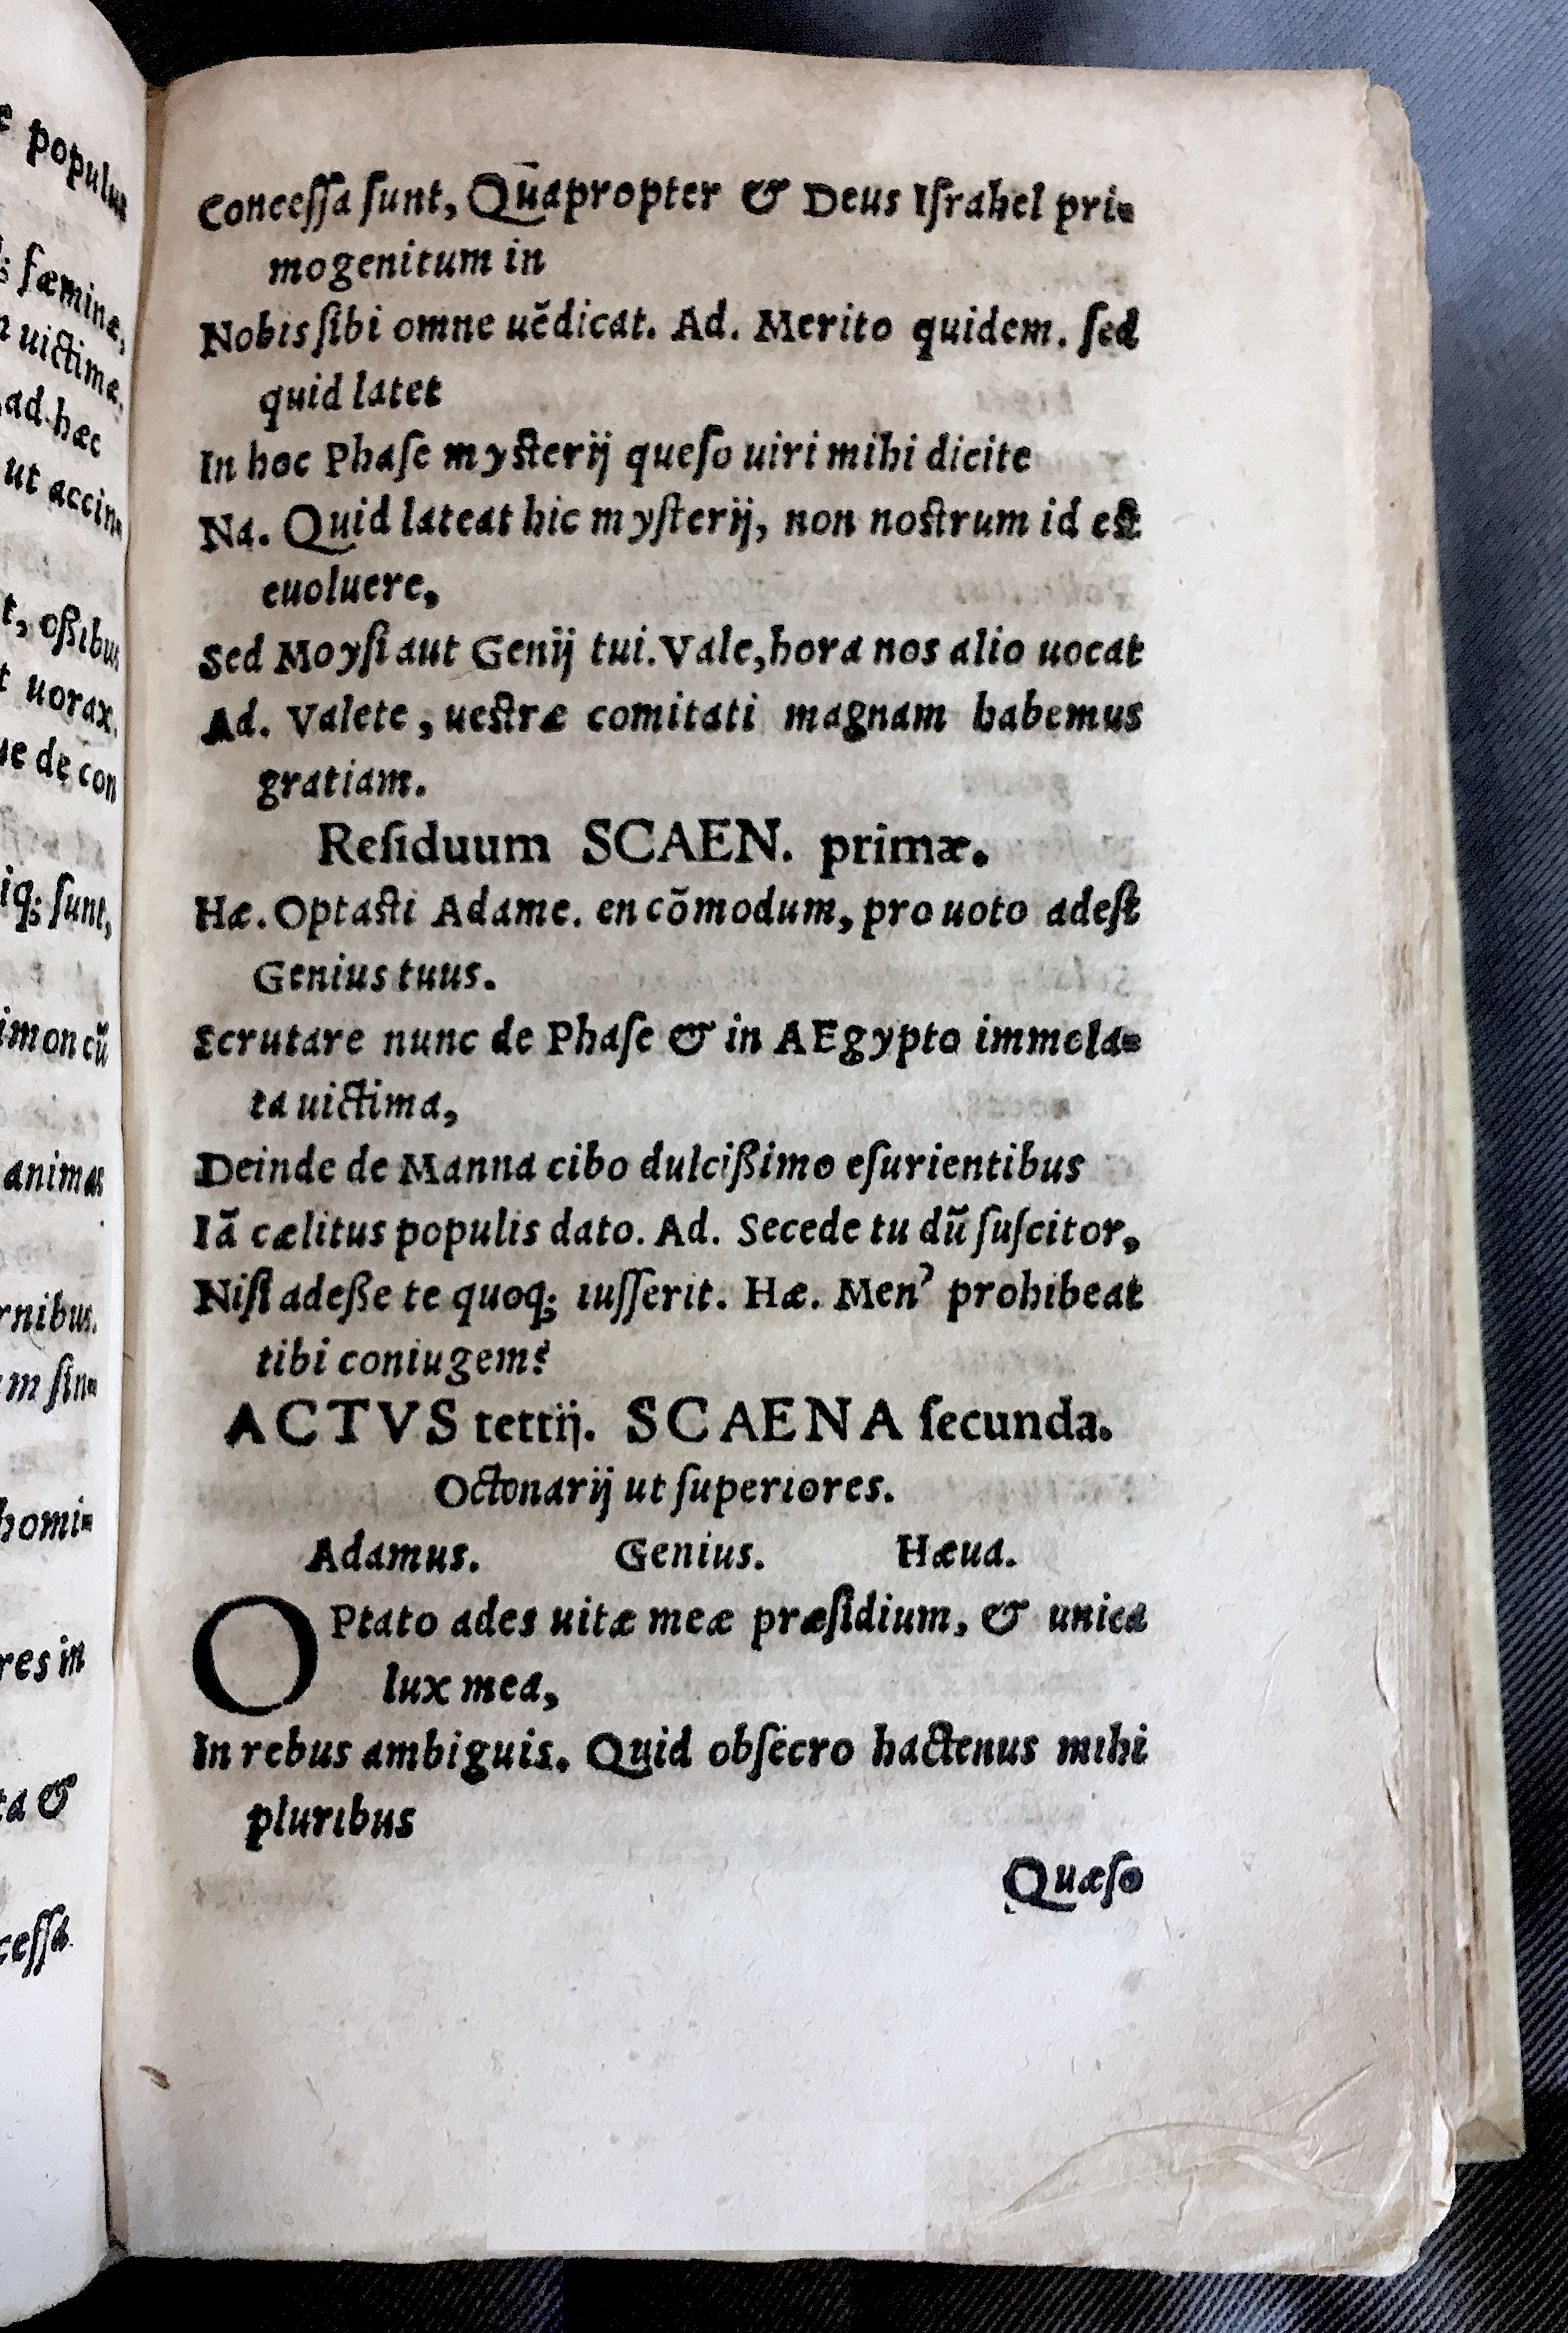 populus
fæminæ,
uictimæ,
ad hæc
ut accin=
oßibus
uorax.
de con
sunt,
animas
homi=
Concessa sunt, Quāpropter & Deus Israhel pri=
mogenitum in
Nobis sibi omne uēdicat. Ad. Merito quidem. sed
quid latet
In hoc Phase mysterij queso uiri mihi dicite
Na. Quid lateat hic mysterij, non nostrum id est
euoluere,
Sed Moysi aut Genij tui. Vale, hora nos alio uocat
Ad. Valete, uestræ comitati magnam habemus
gratiam.
Residuum SCAEN. primæ.
Hæ. Optasti Adame. en cōmodum, pro uoto adest
Genius tuus.
Scrutare nunc de Phase & in AEgypto immola=
ta uictima,
Deinde de Manna cibo dulcißimo esurientibus
Iā cælitus populis dato. Ad. Secede tu dū suscitor,
Nisi adeße te quoq; iusserit. Hæ. Men' prohibeat
tibi coniugem?
ACTVS tertij. SCAENA secunda.
Octonarij ut superiores.
Adamus. Genius. Hæua.
OPtato ades uitæ meæ præsidium, & unica
lux mea,
In rebus ambiguis. Quid obsecro hactenus mihi
pluribus
Quæso